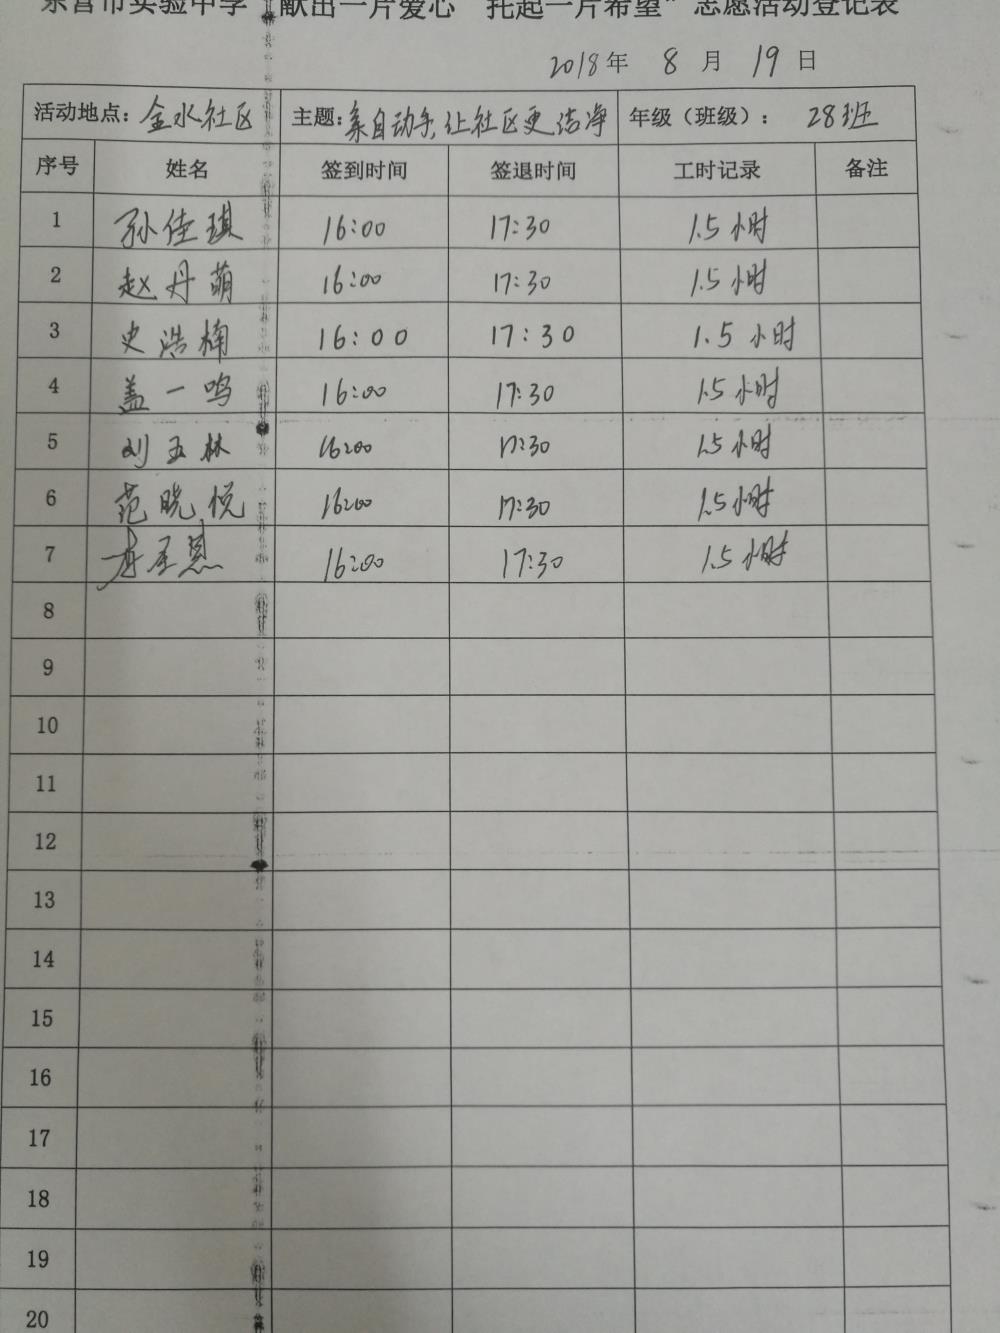 东营市实验中学“献出一片爱心 托起一片希望”志愿活动登记表
2018年 8 月 19 日
活动地点：金水社区 主题：亲自动手，让社区更洁净 年级（班级）： 28班
序号 姓名 签到时间 签退时间 工时记录 备注
1 孙佳琪 16:00 17:30 1.5小时
2 赵丹萌 16:00 17:30 1.5小时
3 史浩楠 16:00 17:30 1.5小时
4 盖一鸣 16:00 17:30 1.5小时
5 刘玉林 16:00 17:30 1.5小时
6 范晓悦 16:00 17:30 1.5小时
7 16:00 17:30 1.5小时
8
9
10
11
12
13
14
15
16
17
18
19
20